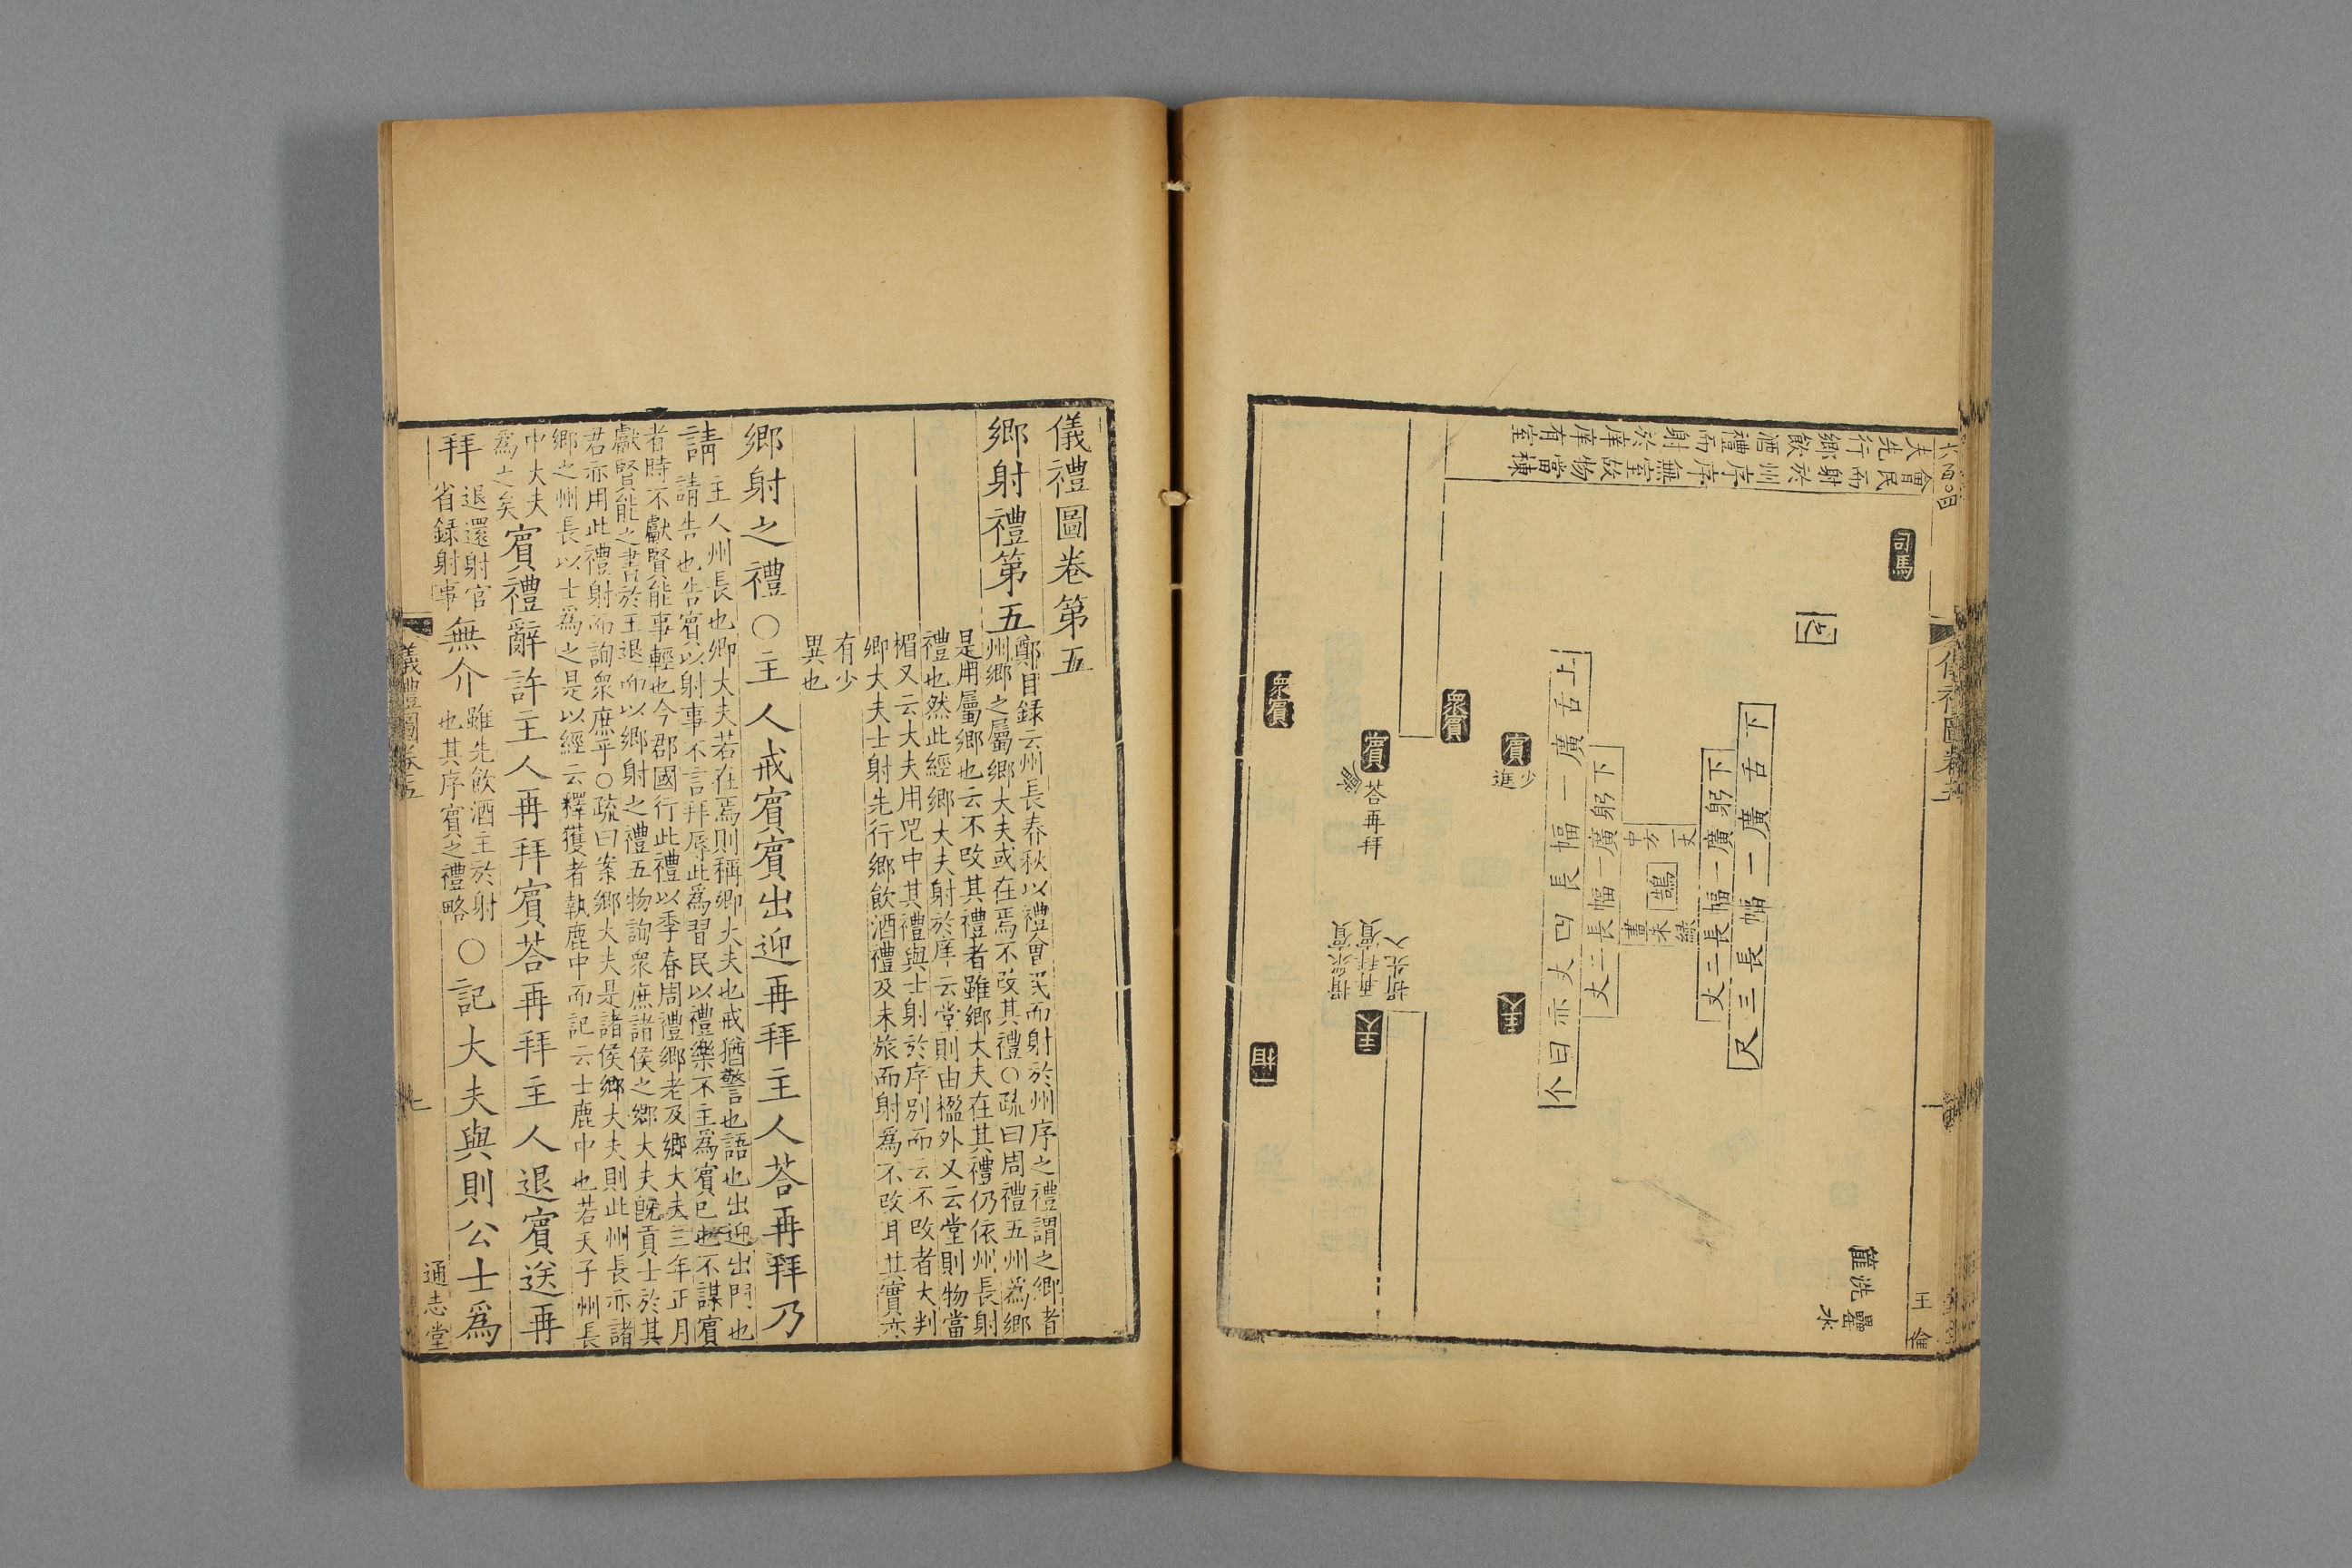 夫先行鄉飲酒禮而射於庠庠有室
會民而射於州序序無室故物當棟
司馬
衆賓
衆賓
賓
少
進
賓
荅再拜
主人
主人
相
上舌廣一幅長四丈亦曰个
下躬廣一幅長二丈
中方
一丈
鵠
畫朱綠
下躬廣一幅長二丈
下舌廣一幅長三尺
篚洗罍
水
王
儀禮圖卷第五
鄉射禮第五
鄭目録云州長春秋以禮會民而射於州序之禮謂之鄉者
州鄉之屬鄉大夫或在焉不改其禮○疏曰周禮五州爲鄉
是用屬鄉也云不改其禮者雖鄉大夫在其禮仍依州長射
禮也然此經鄉大夫射於庠云堂則由楹外又云堂則物當
楣又云大夫用兕中其禮與士射於序別而云不改者大判
鄉大夫士射先行鄉飲酒禮及未旅而射爲不改耳其實亦
有少
異也
鄉射之禮○主人戒賓賓出迎再拜主人荅再拜乃
請
主人州長也鄉大夫若在焉則稱鄉大夫也戒猶警也語也出迎出門也
請告也告賓以射事不言拜辱此爲習民以禮樂不主爲賓已也不謀賓
者時不獻賢能事輕也今郡國行此禮以季春周禮鄉老及鄉大夫三年正月
獻賢能之書於王退而以鄉射之禮五物詢衆庶諸侯之鄉大夫旣貢士於其
君亦用此禮射而詢衆庶乎○疏曰案鄉大夫是諸侯鄉大夫則此州長亦諸
鄉之州長以士爲之是以經云釋獲者執鹿中而記云士鹿中也若天子州長
中大夫
爲之矣
賓禮辭許主人再拜賓荅再拜主人退賓送再
拜
退還射官
省録射事
無介
雖先飲酒主於射
也其序賓之禮略
○記大夫與則公士爲
儀禮圖卷五
七
通志堂